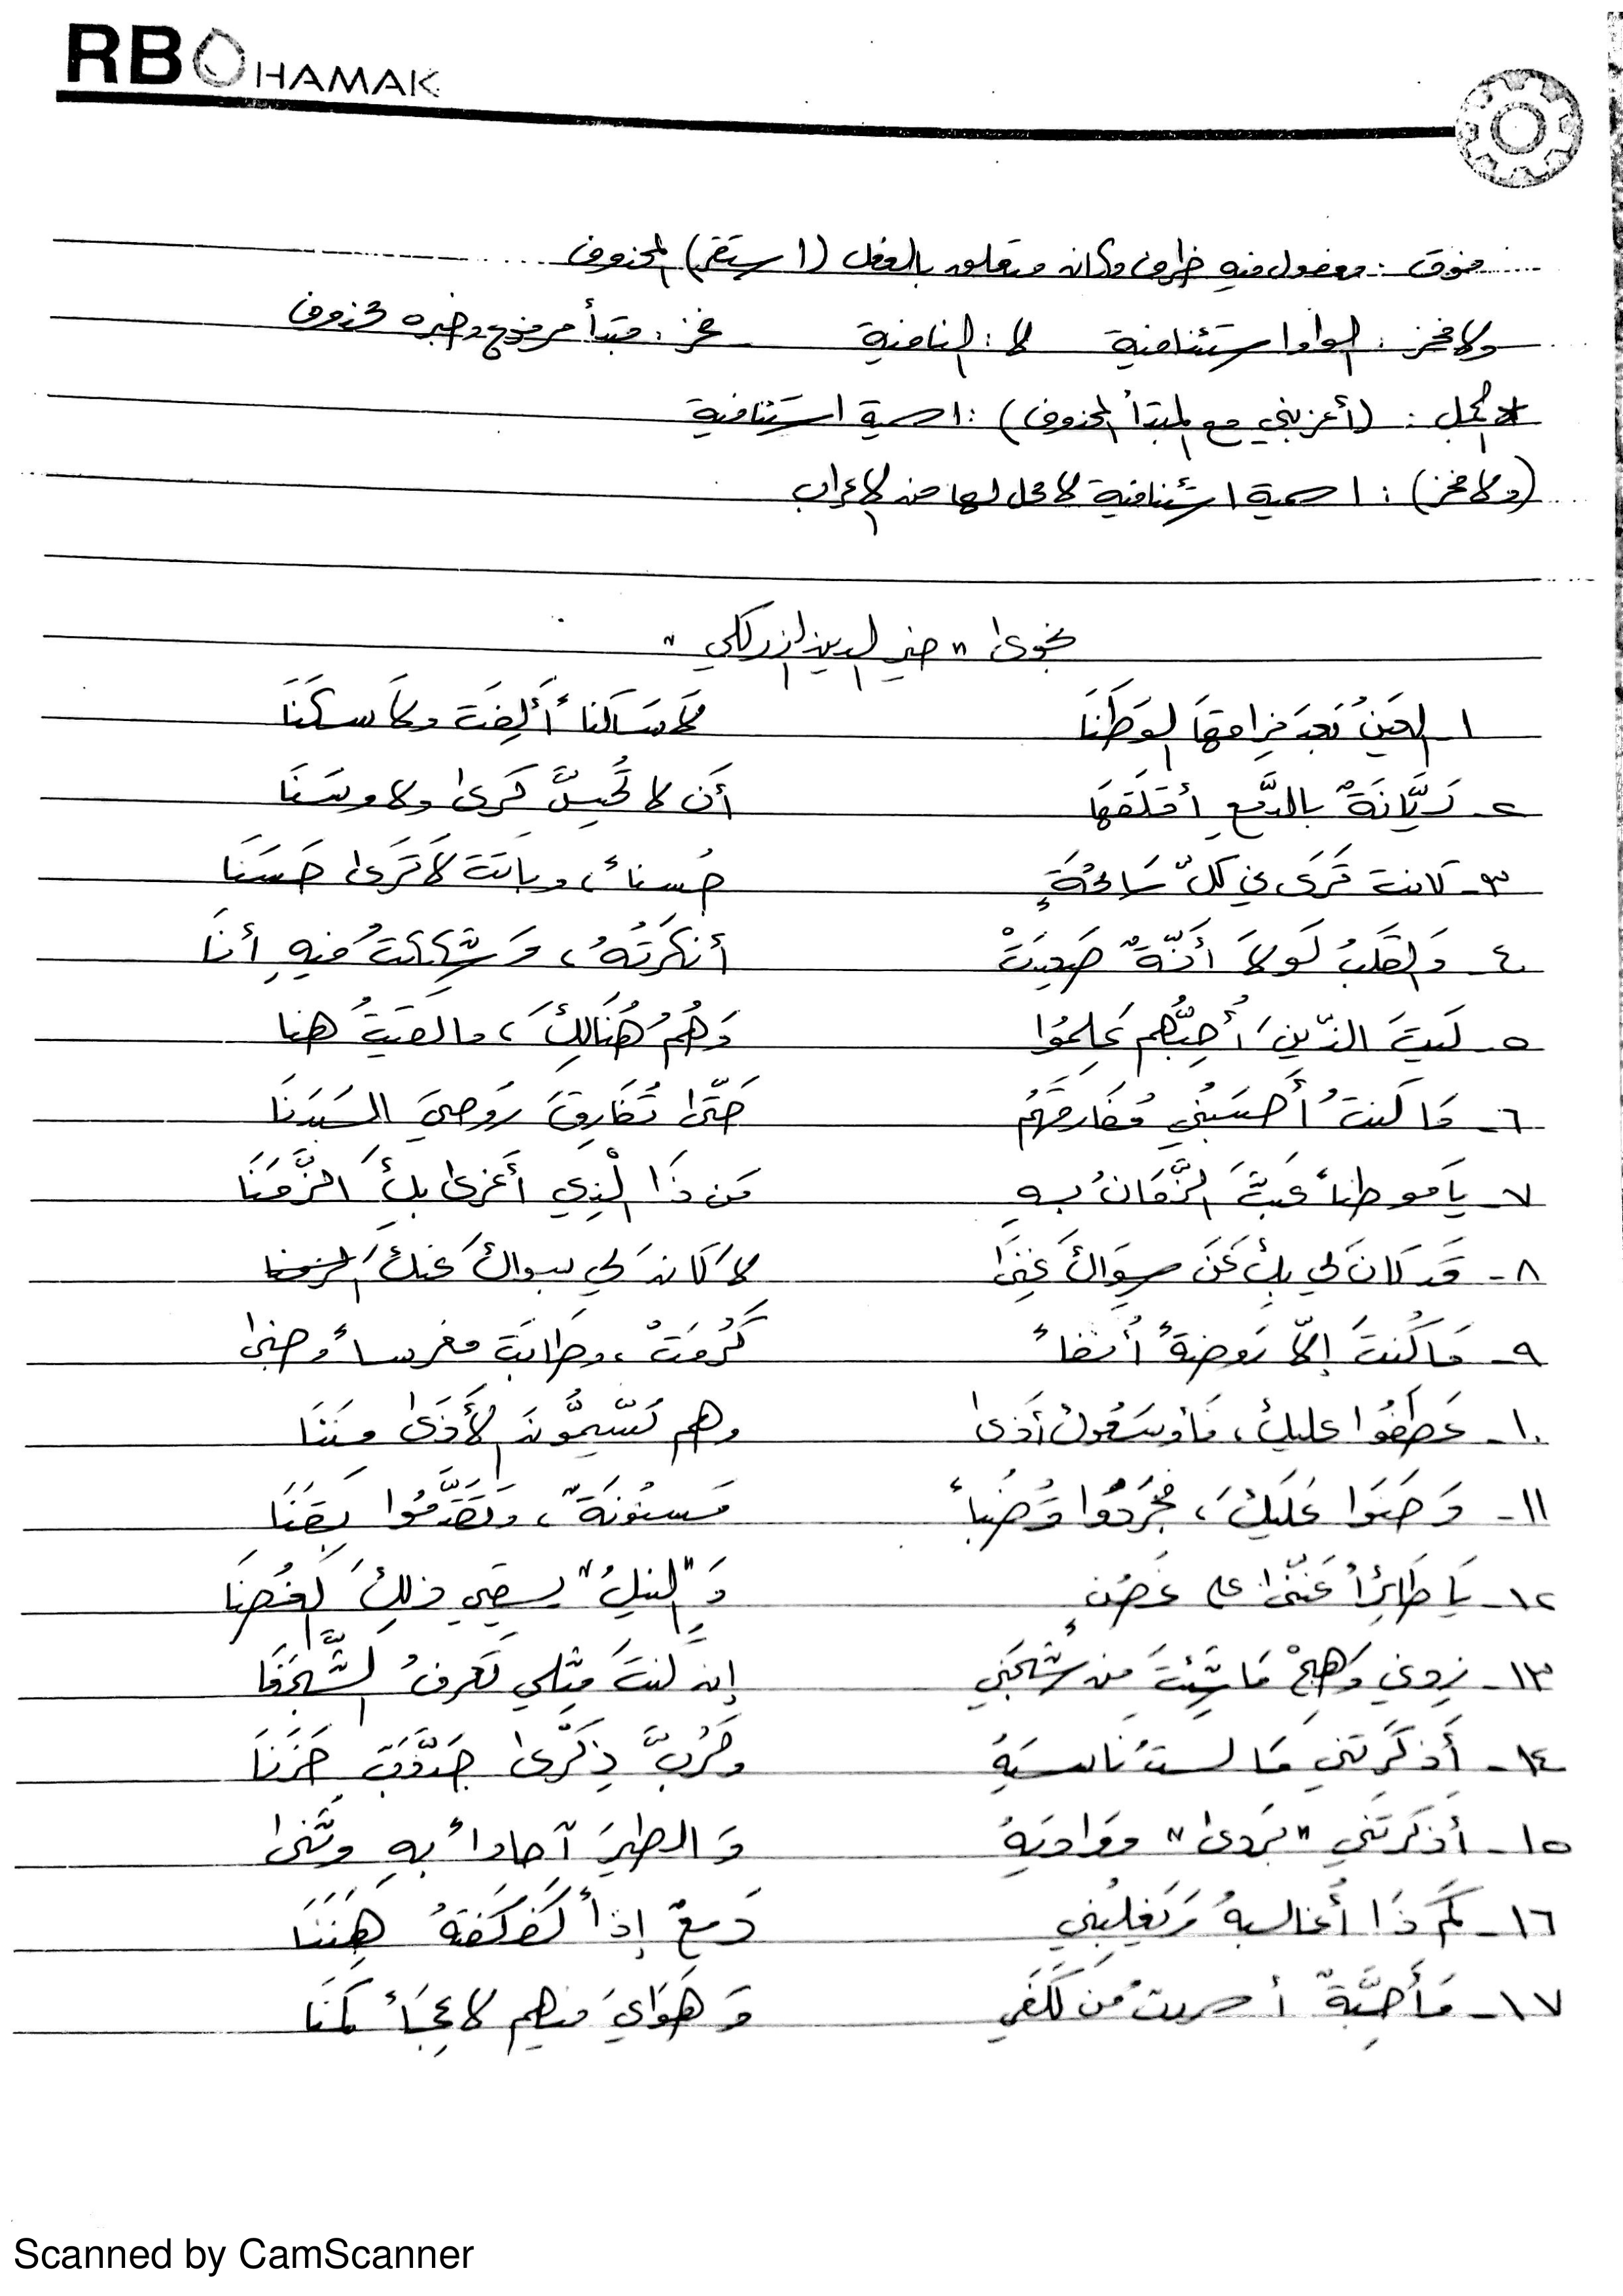 RBOHAMAK
فوق : مفعول فيه ظرف مكان متعلق بالفعل (استقر) المحذوف
ولا فخر : الواو استئنافية لا : النافية فخر : مبتدأ مرفوع وخبره محذوف
* الجمل : (أعزيني مع المبتدأ المحذوف) : اسمية استئنافية
(ولا فخر) : اسمية استئنافية لا محل لها من الإعراب
نجوى " خير الدين الزركلي "
١- العَينُ بَعدَ فِراقِهَا الوَطَنَا لَا سَاكناً أَلِفَت ولَا سكَنَا
٢- رَيَّانَةٌ بالدَّمعِ أقلَقَهَا أَن لا تُحِسَّ كَرىً ولا وسَنَا
٣- كانت تَرَى في كلّ سَانحَةٍ حُسناً، وباتَت لَا تَرَى حَسَنَا
٤- وَالقَلبُ لَولَا أَنَّةٌ صَعِدَتْ أنكَرتُهُ، وَشَكَكتُ فيهِ أنَا
٥- لَيتَ الذّينَ أُحِبُّهم عَلِمُوا وَهُمُ هُنَالِكَ، مالقيتُ هنا
٦- مَا كنتُ أَحسَبُني مُفَارِقَهُم حَتَّى تُفَارِقَ رُوحيَ البَدَنَا
٧- يَا موطناً عَبِثَ الزَّمَانُ بهِ مَن ذَا الذِي أَغرى بكَ الزَّمَنَا
٨- قَد كانَ لي بِكَ عَن سِوَاكَ غِنَى لا كَانَ لي بسواكَ عنكَ
٩- مَا كُنتَ إلّا رَوضةً أُنُفاً كَرُمَتْ، وطَابَت مغرساً وجنى
١٠- عَطَفُوا عليكَ، فَأوسَعُوك أذىً وهم يُسَمُّونَ الأَذَى مِنَنَا
١١- وَحَنَوا عَلَيكَ، فجَرَّدُوا قُضُباً مَسنُونَةً، وتَقَدَّمُوا بِقَنَا
١٢- يَا طَائِراً غَنَّى على غُصُنٍ وَ"النيلُ" يسقي ذلِكَ الغُصُنَا
١٣- زِدني وَهِجْ مَا شِئتَ من شَجَني إن كنتَ مِثلي تَعرفُ الشَّجَنَا
١٤- أَذكَرتَني مَا لستُ ناسيَهُ ولَرُبَّ ذِكرَى جَدَّدَت حَزَنَا
١٥- أذكَرتَني "بَردى" ووَاديَهُ وَالطيرَ آحاداً بهِ وثُنى
١٦- كَم ذَا أُغالبهُ وَيَغلِبُني دَمعٌ إذا كَفكَفتُهُ هَتَنَا
١٧- وَأَحِبَّةٌ أسررتُ مِن كَلَفي وَهَوَايَ فيهم لاعِجاً كَمَنَا
Scanned by CamScanner